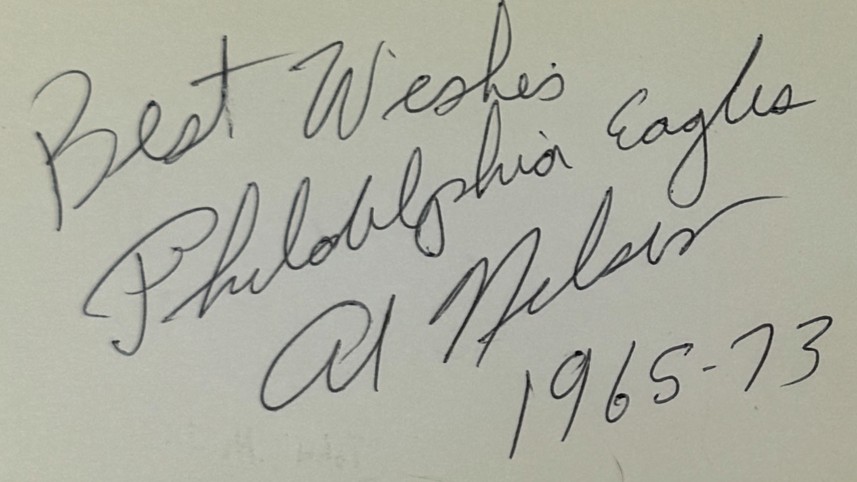 Best Wishes
Philadelphia Eagles
Al Nelson
1965-73